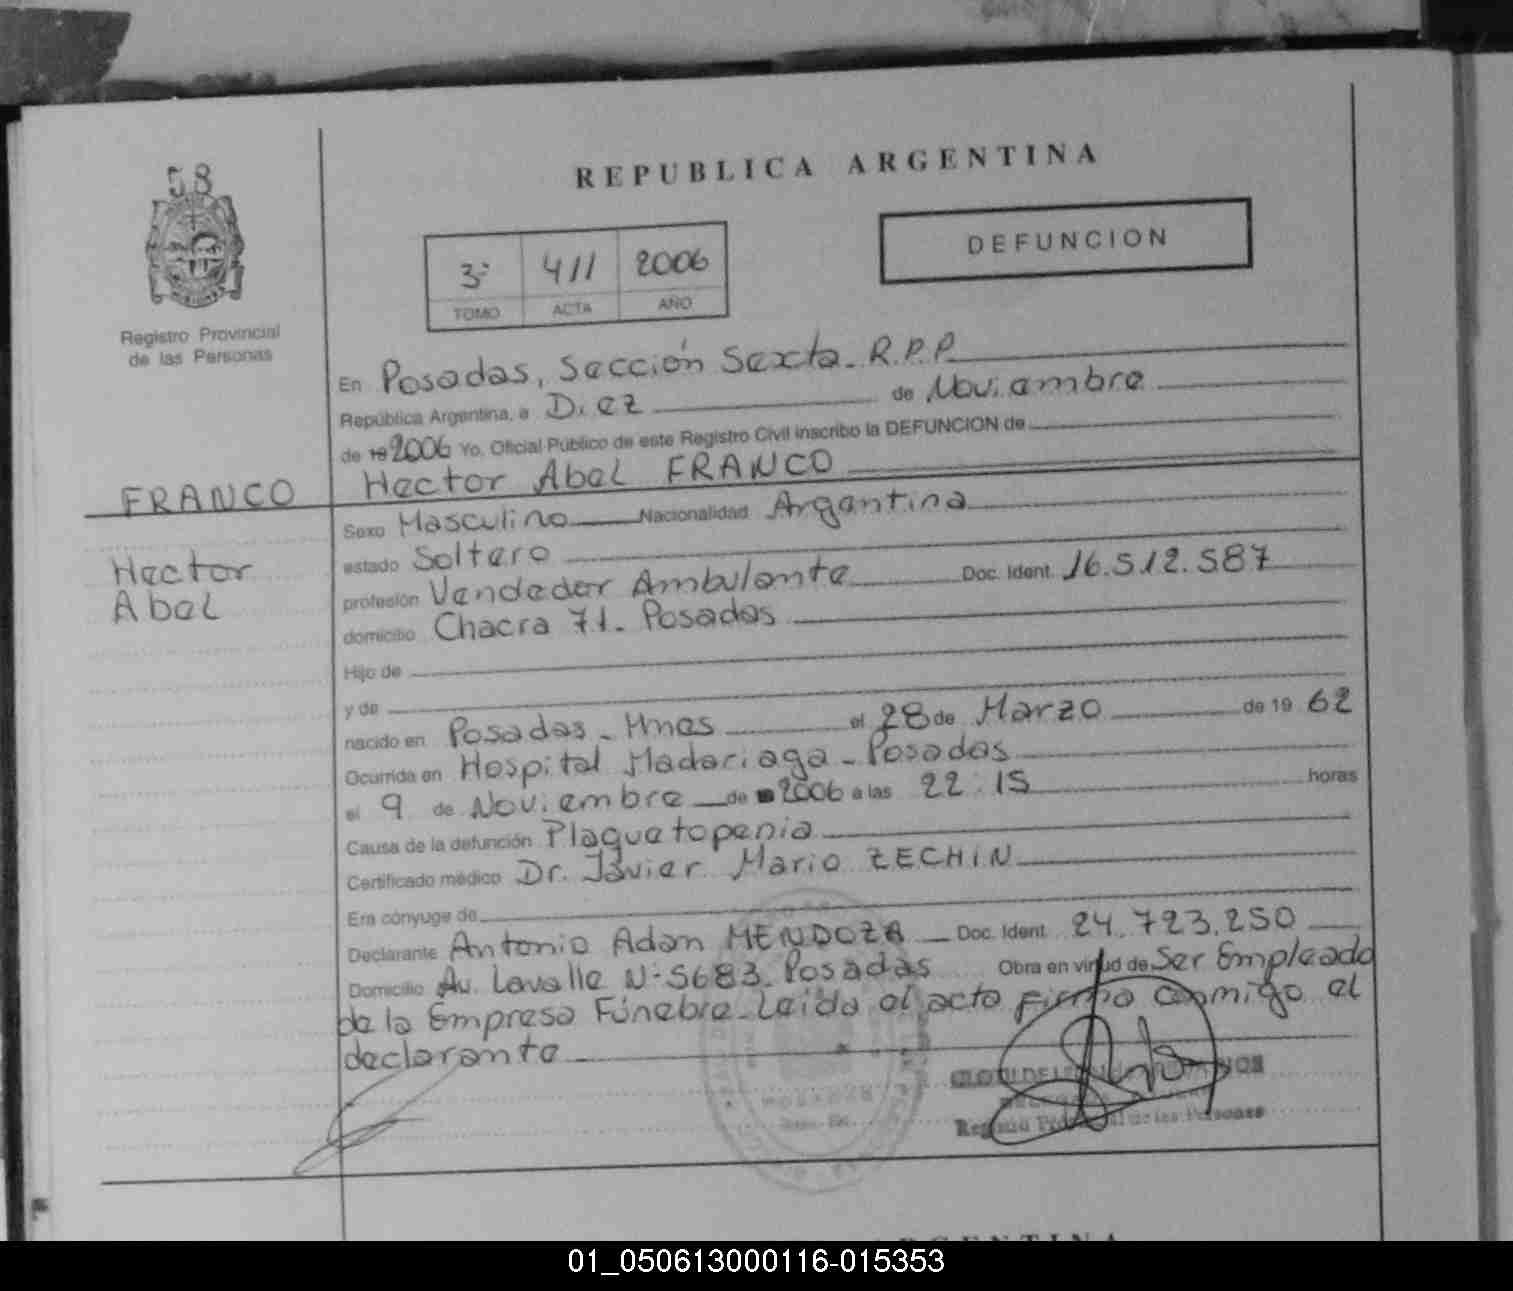 58
REPUBLICA ARGENTINA
DEFUNCION
3º 411 2006
TOMO ACTA AÑO
Registro Provincial
de las Personas
En Posadas, Sección Sexta. R.P.P
República Argentina, a Diez de Noviembre
de 19 2006 Yo, Oficial Público de este Registro Civil inscribo la DEFUNCION de
Hector Abel FRANCO
FRANCO
Hector
Abel
Sexo Masculino Nacionalidad Argentina
estado Soltero
profesión Vendedor Ambulante Doc. Ident. 16.512.587
domicilio Chacra 71. Posadas
Hijo de
y de
nacido en Posadas - Mnes el 28 de Marzo de 19 62
Ocurrida en Hospital Madariaga - Posadas
el 9 de Noviembre de 2006 a las 22:15 horas
Causa de la defunción Plaquetopenia
Certificado médico Dr. Javier Mario ZECHIN
Era cónyuge de
Declarante Antonio Adan MENDOZA Doc. Ident. 24.723.250
Domicilio Av. Lavalle Nº 5683. Posadas Obra en virtud de Ser Empleado
de la Empresa Fúnebre. Leída el acta firma conmigo el
declarante
de las Personas
ARGENTINA
01_050613000116-015353